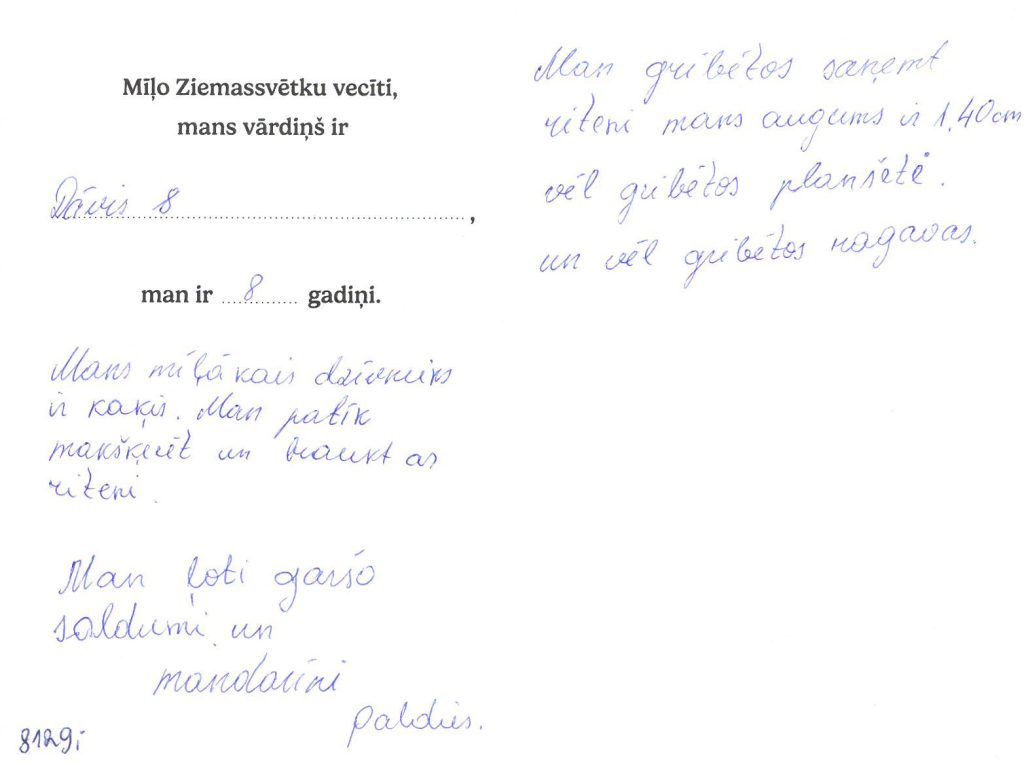 Mīļo Ziemassvētku vecīti,
mans vārdiņš ir
Dāvis 8,
man ir 8 gadiņi.
Mans mīļākais dzīvnieks
ir kaķis. Man patīk
makšķerēt un braukt as
riteni.
Man ļoti garšo
saldumi un
mandarīni
paldies.
8129;
Man gribētos saņemt
riteni mans augums ir 1,40cm
vēl gribētos planšētē.
un vēl gribētos ragavas.